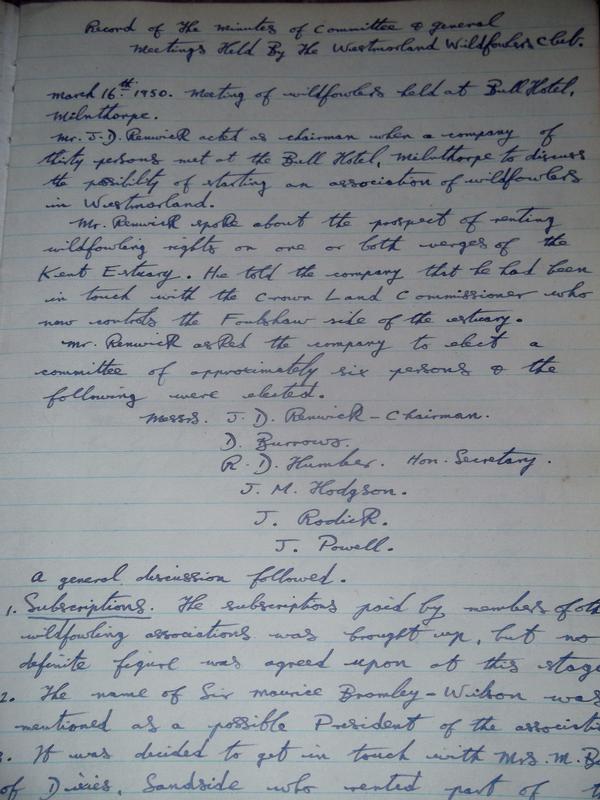 Record of The Minutes of Committee & general
Meetings Held By The Westmorland Wildfowlers Club.
March 16th 1950. Meeting of wildfowlers held at Bull Hotel,
Milnthorpe.
Mr. J. D. Renwick acted as chairman when a company of
thirty persons met at the Bull Hotel, Milnthorpe to discuss
the possibility of starting an association of wildfowlers
in Westmorland.
Mr. Renwick spoke about the prospect of renting
wildfowling rights on one or both verges of the
Kent Estuary. He told the company that he had been
in touch with the Crown Land Commissioner who
now controls the Foulshaw side of the estuary.
Mr. Renwick asked the company to elect a
committee of approximately six persons & the
following were elected.
Messrs. J. D. Renwick - Chairman.
D. Burrows.
R. D. Humber. Hon. Secretary.
J. M. Hodgson.
J. Rodick.
J. Powell.
A general discussion followed.
1. Subscriptions. The subscriptions paid by members of oth
wildfowling associations was brought up, but no
definite figure was agreed upon at this stage
2. The name of Sir Maurice Bromley-Wilson was
mentioned as a possible President of the associati
3. It was decided to get in touch with Mrs. M. B
of Sandside who rented part of t